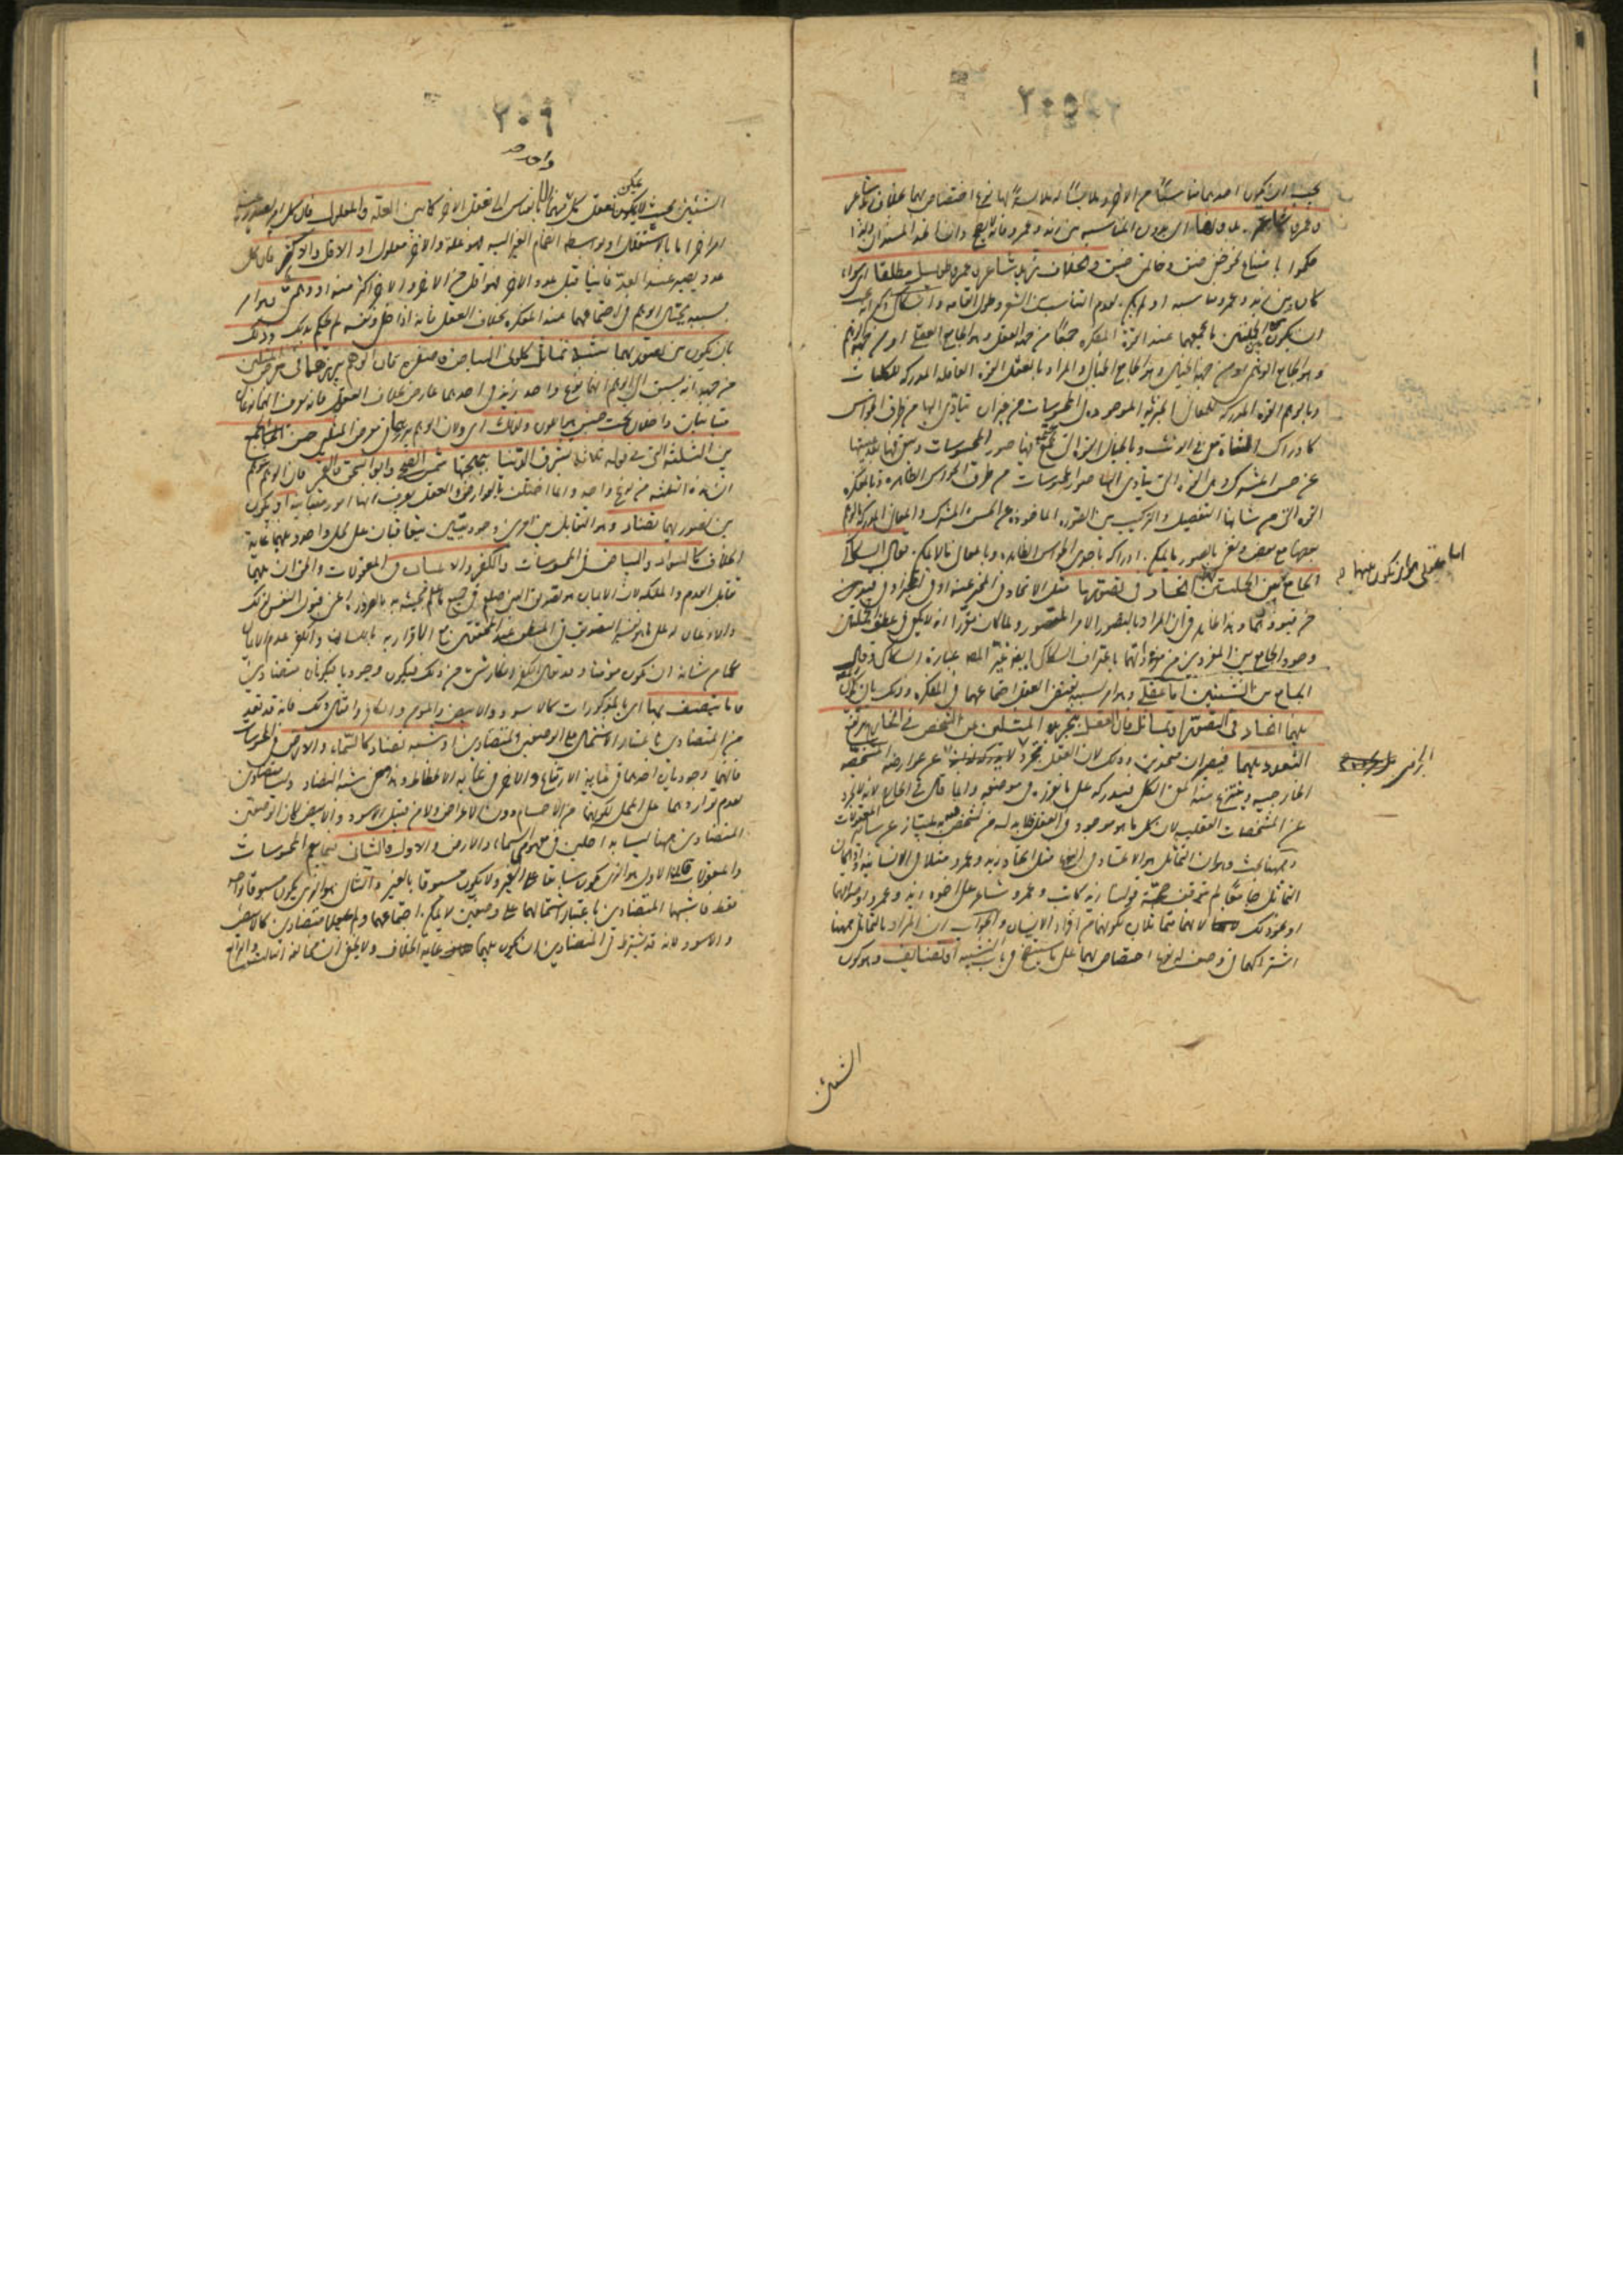 ٢٠٥
يجب ان يكون احدهما مناسبا من الآخر وملابسا له ملابسة لها نوع اختصاص بهما بخلاف زيد شاعر
وعمرو شاعر بدونها اى بدون المناسبة بين زيد وعمرو فانه لا يصح وان اتحد المسندان ولهذا
حكموا بامتناع نحو خفى ضيق وخاتمى ضيق وبخلاف زيد شاعر وعمرو طويل مطلقا اى سواء
كان بين زيد وعمرو مناسبة او لم يكن لعدم التناسب بين الشعر وطول القامة والسكاكى ذكر انه يجب
ان يكون بين الجملتين ما يجمعهما عند القوة المفكرة جمعا من جهة العقل وهو الجامع العقلى او من جهة الوهم
وهو الجامع الوهمى او من جهة الخيال وهو الجامع الخيالى والمراد بالعقل القوة العاقلة المدركة للكليات
وبالوهم القوة المدركة للمعانى الجزئية الموجودة فى المحسوسات من غير ان يتأدى اليها من طرق الحواس
كادراك الشاة معنى فى الذئب وبالخيال القوة التى تجتمع فيها صور المحسوسات وتبقى فيها بعد غيبتها
عن حس المشترك وهى القوة التى يتأدى اليها صور المحسوسات من طرق الحواس الظاهرة وبالمفكرة
القوة التى من شأنها التفصيل والتركيب بين الصور المأخوذة عن الحس المشترك والمعانى المدركة بالوهم
بعضها مع بعض ونعنى بالصور ما يمكن ادراكه باحدى الحواس الظاهرة وبالمعانى ما لا يمكن فقال السكاكى
الجامع بين الجملتين
اما عقلى وهو ان يكون بينهما
اتحاد فى تصور ما مثل الاتحاد فى المخبر عنه او فى الخبر او فى قيد من
وجود الجامع بين المفردين من مفرداتهما باعتراف السكاكى ايضا غير المص عبارة السكاكى وقال
الجامع بين الشيئين اما عقلى وهو امر بسببه يقتضى العقل اجتماعهما فى المفكرة وذلك بان يكون
بينهما اتحاد فى التصور او تماثل فان العقل بتجريده المثلين عن التشخص فى الخارج يرفع
التعدد بينهما فيصيران متحدين وذلك لان العقل مجرد لا يدرك بذاته
الجزئى
عن عوارضه المشخصة
الخارجية وينتزع منه المعنى الكلى فيدركه على ما تقرر فى موضعه وانما قال فى الخارج لانه لا يجرد
عن المشخصات العقلية لان كل ما هو موجود فى العقل فلا بد له من تشخص به يمتاز عن سائر المعقولات
وههنا بحث وهو ان التماثل هو الاتحاد فى النوع مثل اتحاد زيد وعمرو مثلا فى الانسانية واذا كان
التماثل جامعا لم تتوقف صحة قولنا زيد كاتب وعمرو شاعر على اخوة زيد وعمرو او صداقتهما
او نحو ذلك لانهما متماثلان لكونهما من افراد الانسان والجواب ان المراد بالتماثل ههنا
اشتراكهما فى وصف له نوع اختصاص بهما على ما سيتضح فى باب التشبيه او تضايف وهو كون
الشيئين
٢٠٦
الشيئين بحيث لا يمكن تعقل كل منهما الا بالقياس الى تعقل الآخر كما بين العلة والمعلول فان كل امر يصدر عنه
امر آخر اما بالاستقلال او بواسطة انضمام الغير اليه فهو علة والآخر معلول او الاقل والاكثر فان كل
عدد يصير عند العد فانيا قبل عدد الآخر فهو اقل من الآخر والآخر اكثر منه او وهمى وهو امر
بسببه يحتال الوهم فى اجتماعهما عند المفكرة بخلاف العقل فانه اذا خلى ونفسه لم يحكم بذلك وذلك
بان يكون بين تصوريهما شبه تماثل كلونى البياض وصفرة فان الوهم يبرزهما فى معرض المثلين
من جهة انه يسبق الى الوهم انهما نوع واحد زيد فى احدهما عارض بخلاف العقل فانه يعرف انهما نوعان
متباينان داخلان تحت جنس هو اللون ولذلك اى ولان الوهم يبرزهما فى معرض المثلين حسن الجمع
بين الثلثة التى فى قوله ثلاثة تشرق الدنيا ببهجتها شمس الضحى وابو اسحق والقمر فان الوهم يتوهم
ان هذه الثلثة من نوع واحد وانما اختلفت بالعوارض والعقل يعرف انها امور متباينة او يكون
بين تصوريهما تضاد وهو التقابل بين امرين وجوديين يتعاقبان على محل واحد بينهما غاية
الخلاف كالسواد والبياض فى المحسوسات والكفر والايمان فى المعقولات والحق ان بينهما
تقابل العدم والملكة لان الايمان هو تصديق النبى صلعم فى جميع ما علم مجيئه به بالضرورة اعنى قبول النفس لذلك
والاذعان له على ما هو تفسير التصديق فى المنطق عند المحققين مع الاقرار به باللسان والكفر عدم الايمان
عما من شانه ان يكون مؤمنا وقد يقال الكفر انكار شىء من ذلك فيكون وجوديا فيكونان متضادين
وما يتصف بها اى بالمذكورات كالاسود والابيض والمؤمن والكافر وامثال ذلك فانه قد يعد
من المتضادين باعتبار الاشتمال على الوصفين المتضادين او شبه تضاد كالسماء والارض فى المحسوسات
فانهما وجوديان احدهما فى غاية الارتفاع والآخر فى غاية الانحطاط وهذا معنى شبه التضاد وليسا متضادين
لعدم تواردهما على المحل لكونهما من الاجسام دون الاعراض ولا من قبيل الاسود والابيض لان الوصفين
المتضادين ههنا ليسا بداخلين فى مفهومى السماء والارض والاول والثانى فيما يعم المحسوسات
والمعقولات فان الاول هو الذى يكون سابقا على الغير ولا يكون مسبوقا بالغير والثانى هو الذى يكون مسبوقا بواحد
فقط فاشبها المتضادين باعتبار اشتمالهما على وصفين لا يمكن اجتماعهما ولم يجعلا متضادين كالابيض
والاسود لانه قد يشترط فى المتضادين ان يكون بينهما غاية الخلاف ولا يخفى ان مخالفة الثالث والرابع